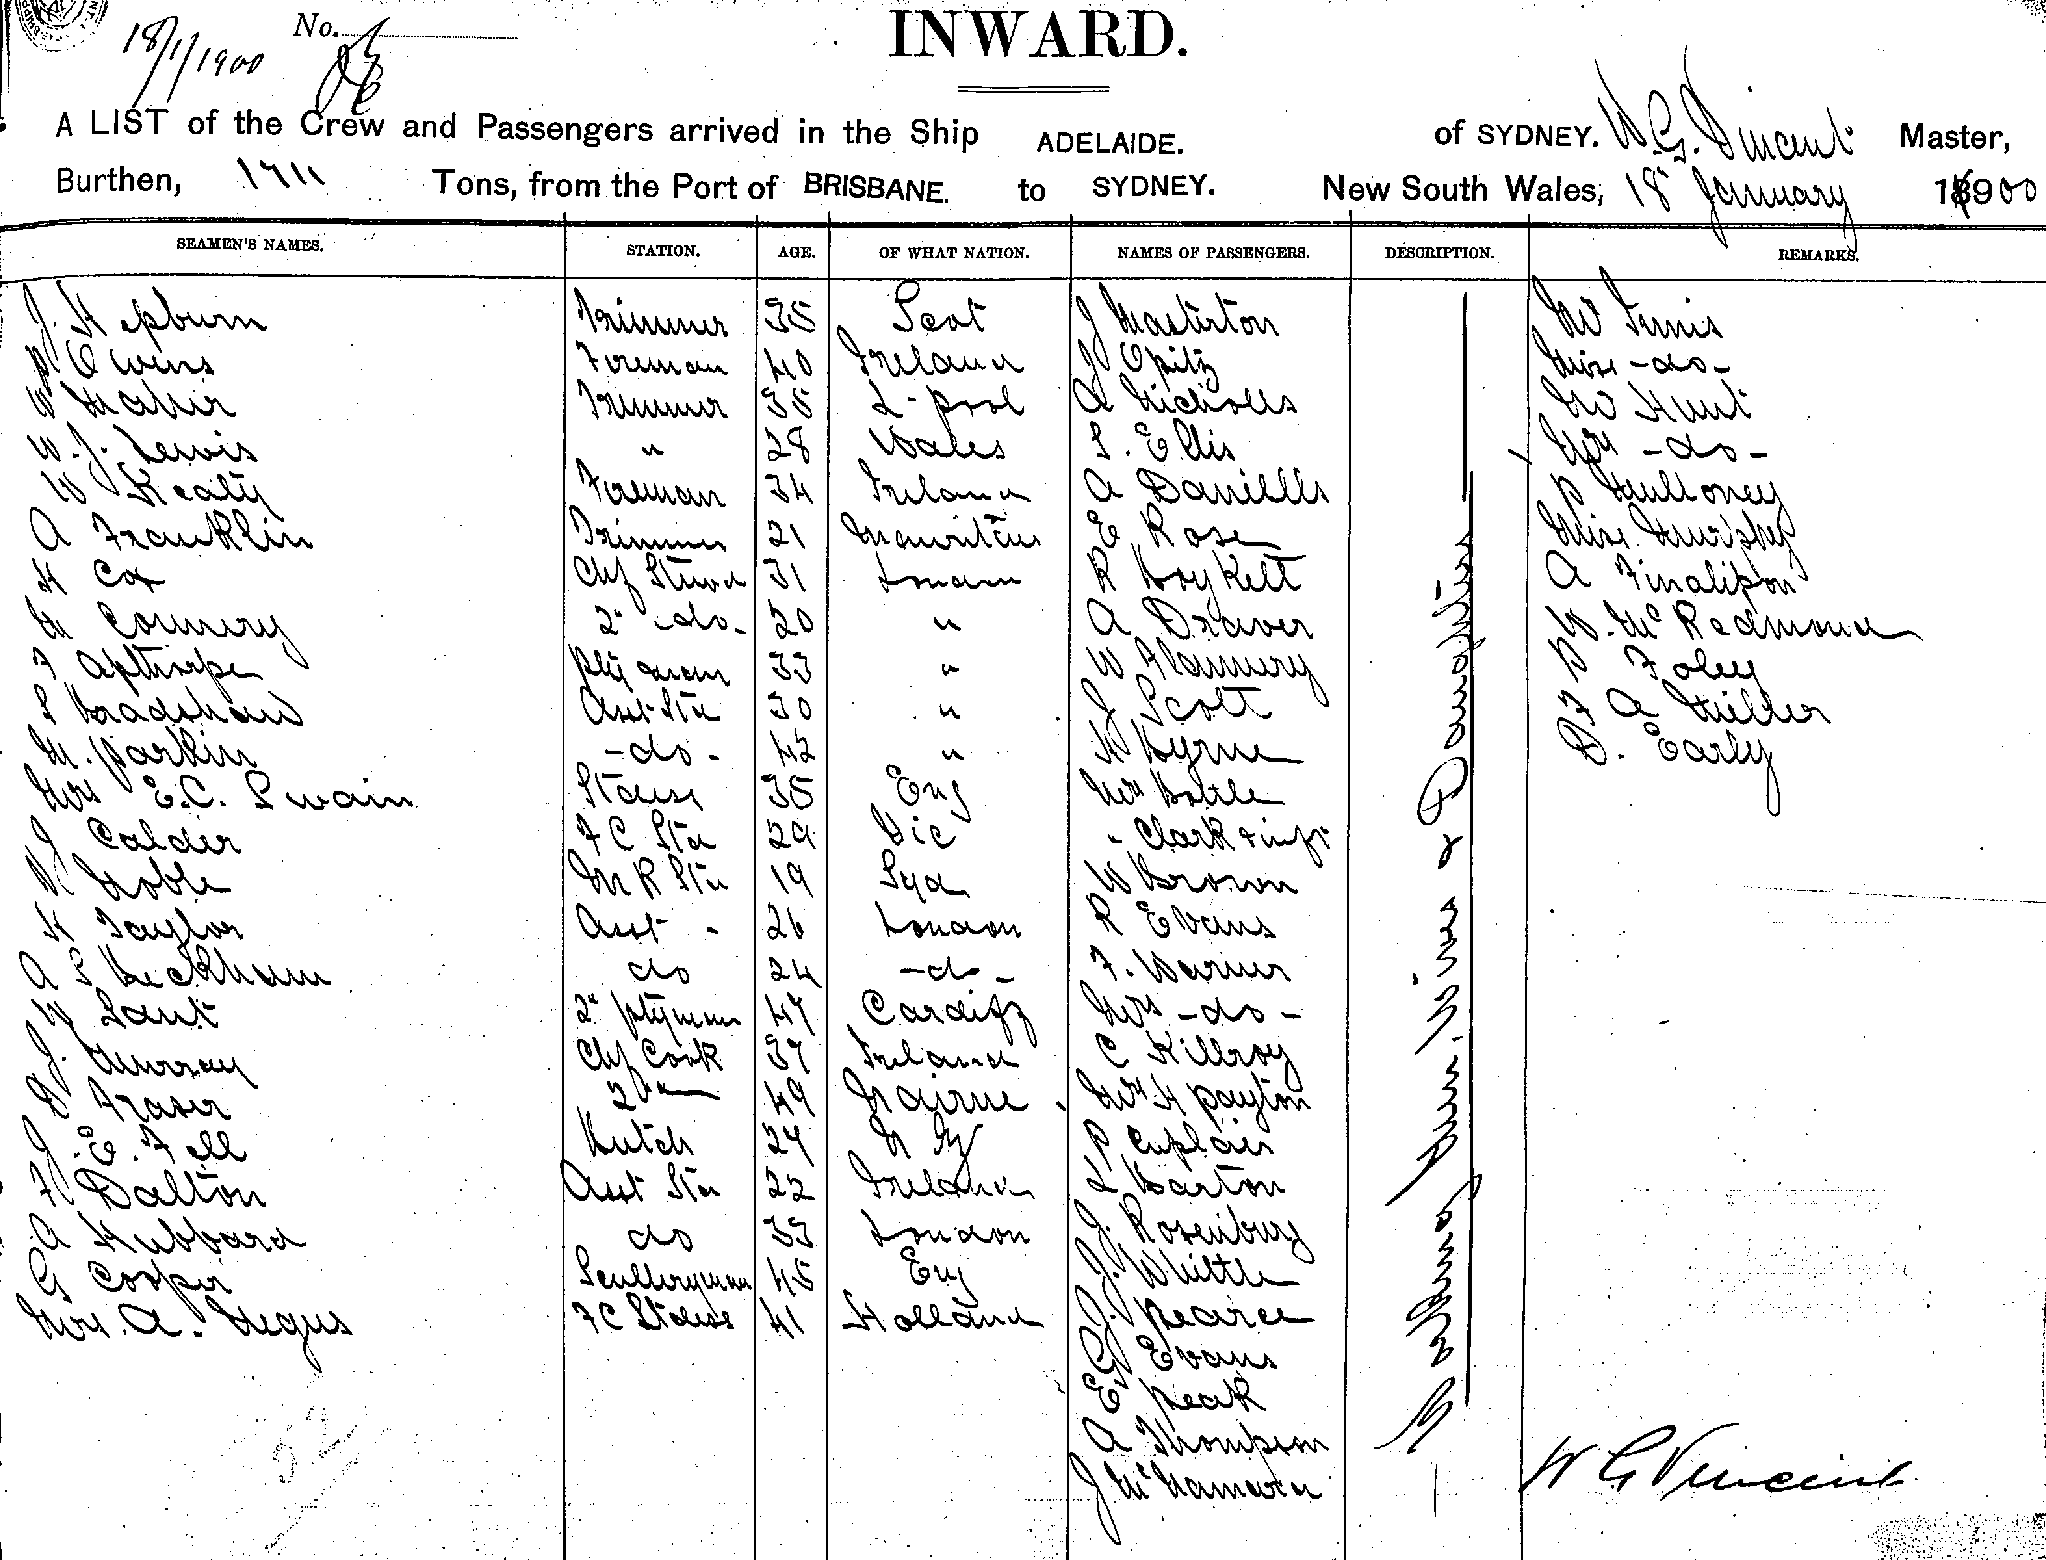 INWARD.
18/1/1900 No.
A LIST of the Crew and Passengers arrived in the Ship ADELAIDE. of SYDNEY. W. G. Vincent Master,
Burthen, 1711 Tons, from the Port of BRISBANE. to SYDNEY. New South Wales, 18 January 1900
SEAMEN'S NAMES. STATION. AGE. OF WHAT NATION. NAMES OF PASSENGERS. DESCRIPTION. REMARKS.
J. Hepburn Trimmer 35 Scot J Masterton Mr Tennis
P Owens Foreman 40 Ireland J Opitz Miss -do-
W Maher Trimmer 35 L-pool A Nicholls Mr Hunt
W. J. Lewis " 28 Wales S. Ellis Mrs -do-
W Healy Foreman 34 Ireland A Daniells P Mulloney
A Franklin Trimmer 21 Mauritius E Rose Miss Murphy
H Cox Chf Stewd 31 London R Boykett A
M 2" -do- 20 " A Draver W. McRedmond
F Apthorpe 33 " W Flannery P Foley
S Bradshaw Asst Std 30 " J Scott F A Miller
M. Parkin -do- 42 " H Byrne D. Early
Mrs E.C. Swain Stdess 35 Eng Mrs
J Calder F C Std 29 Vic " Clark & infт
P Noble M R Std 19 Syd W Brown
H Taylor Asst - 26 London R Evans
A S Beckham do 24 -do- F. Warner
W Lant 2" 47 Cardiff Mrs -do-
J. Murray Chf Cook 37 Ireland C Killroy
D Fraser 2" 49 Nairne Mrs H Payton
J. E. Fell Butch 27 N Z P
F Dalton Asst Std 22 Ireland L Barton
A Hubbard do 33 London J. Rosenburg
G Cooper Sculleryman 45 Eng J. Whittle
Mrs. A. Negus F C Stdess 41 Holland J. Pearce
G Evans
E Peak
A Thompson
J McNamara
52
W G Vincent